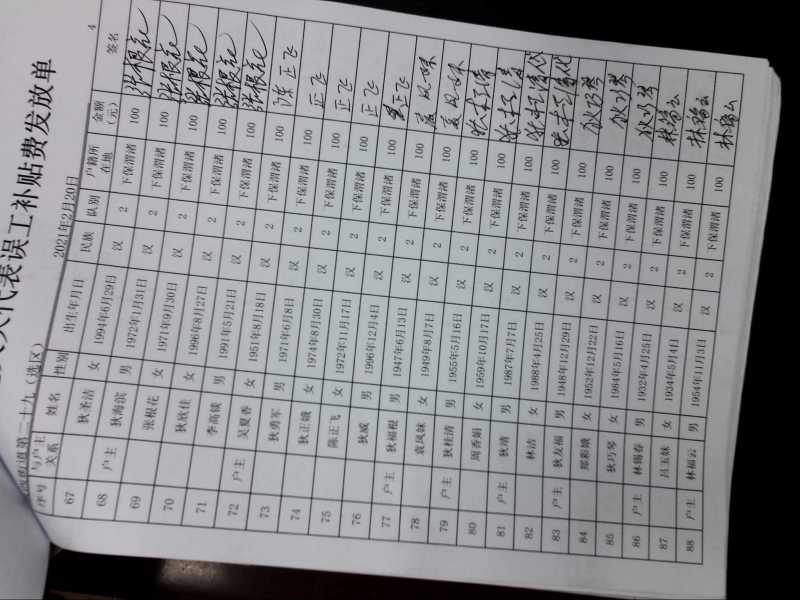 大代表误工补贴费发放单
街道第二十九（选区） 2021年2月20日 4
序号 与户主关系 姓名 性别 出生年月日 民族 队别 户籍所在地 金额（元） 签名
67 狄圣洁 女 1994年6月29日 汉 2 下保渭渚 100 张根花
68 户主 狄海滨 男 1972年1月31日 汉 2 下保渭渚 100 张根花
69 张根花 女 1971年9月30日 汉 2 下保渭渚 100 张根花
70 狄欣佳 女 1996年8月27日 汉 2 下保渭渚 100 张根花
71 李高 男 1991年5月21日 汉 2 下保渭渚 100 张根花
72 户主 吴夏香 女 1951年8月18日 汉 2 下保渭渚 100 陈正飞
73 狄勇军 男 1971年6月8日 汉 2 下保渭渚 100 正飞
74 狄正娥 女 1974年8月30日 汉 2 下保渭渚 100 正飞
75 陈正飞 女 1972年11月17日 汉 2 下保渭渚 100 正飞
76 狄威 男 1996年12月4日 汉 2 下保渭渚 100 正飞
77 户主 狄福根 男 1947年6月13日 汉 2 下保渭渚 100 袁凤妹
78 袁凤妹 女 1949年8月7日 汉 2 下保渭渚 100 袁凤妹
79 户主 狄桂清 男 1955年5月16日 汉 2 下保渭渚 100
80 周香娟 女 1959年10月17日 汉 2 下保渭渚 100
81 户主 狄靖 男 1987年7月7日 汉 2 下保渭渚 100
82 林洁 女 1988年4月25日 汉 2 下保渭渚 100
83 户主 狄友福 男 1948年12月29日 汉 2 下保渭渚 100 狄巧琴
84 郑彩娥 女 1952年12月22日 汉 2 下保渭渚 100 狄巧琴
85 狄巧琴 女 1984年5月16日 汉 2 下保渭渚 100 狄巧琴
86 户主 林锡春 男 1932年4月25日 汉 2 下保渭渚 100 林福云
87 吕玉妹 女 1934年5月4日 汉 2 下保渭渚 100 林福云
88 户主 林福云 男 1954年11月3日 汉 2 下保渭渚 100 林福云